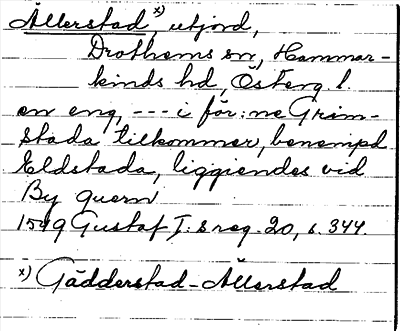 Ållerstad x), utjord,
Drothems sn, Hammar-
kinds hd, Österg. l.
en eng, --- i för:ne Grim-
stada tilkommer, benempd
Eldstada, liggiendes vid
By quern
1549 Gustaf I:s reg. 20, s. 344.
x) Gädderstad-Ållerstad